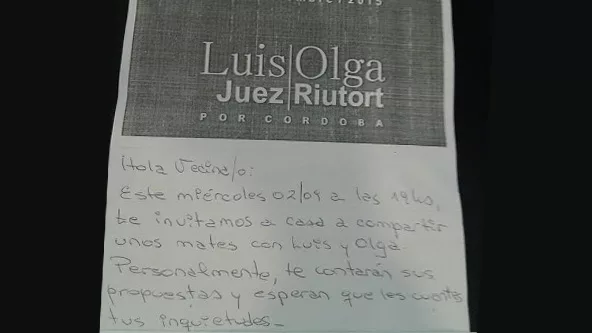 Luis|Olga
Juez|Riutort
POR CORDOBA
Hola Vecina/o:
Este miércoles 02/09 a las 19hs,
te invitamos a casa a compartir
unos mates con Luis y Olga.
Personalmente, te contarán sus
propuestas y esperan que les cuentes
tus inquietudes_